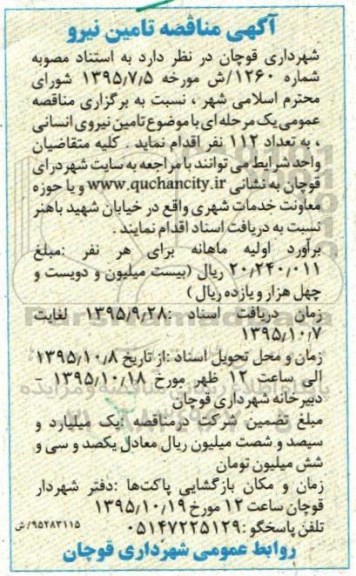 آگهی مناقصه تامین نیرو
شهرداری قوچان در نظر دارد به استناد مصوبه
شماره ۱۲۶۰/ش مورخه ۱۳۹۵/۷/۵ شورای
محترم اسلامی شهر ، نسبت به برگزاری مناقصه
عمومی یک مرحله ای با موضوع تامین نیروی انسانی
، به تعداد ۱۱۲ نفر اقدام نماید . کلیه متقاضیان
واحد شرایط می توانند با مراجعه به سایت شهرداری
قوچان به نشانی www.quchancity.ir و یا حوزه
معاونت خدمات شهری واقع در خیابان شهید باهنر
نسبت به دریافت اسناد اقدام نمایند .
برآورد اولیه ماهانه برای هر نفر :مبلغ
۲۰/۲۴۰/۰۱۱ ریال (بیست میلیون و دویست و
چهل هزار و یازده ریال )
زمان دریافت اسناد :۱۳۹۵/۹/۲۸ لغایت
۱۳۹۵/۱۰/۷
زمان و محل تحویل اسناد :از تاریخ ۱۳۹۵/۱۰/۸
الی ساعت ۱۲ ظهر مورخ ۱۳۹۵/۱۰/۱۸ -
دبیرخانه شهرداری قوچان
مبلغ تضمین شرکت درمناقصه :یک میلیارد و
سیصد و شصت میلیون ریال معادل یکصد و سی و
شش میلیون تومان
زمان و مکان بازگشایی پاکت‌ها :دفتر شهردار
قوچان ساعت ۱۲ مورخ ۱۳۹۵/۱۰/۱۹
تلفن پاسخگو :۰۵۱۴۷۲۲۵۱۲۹
۹۵۲۸۳۱۱۵/ش
روابط عمومی شهرداری قوچان